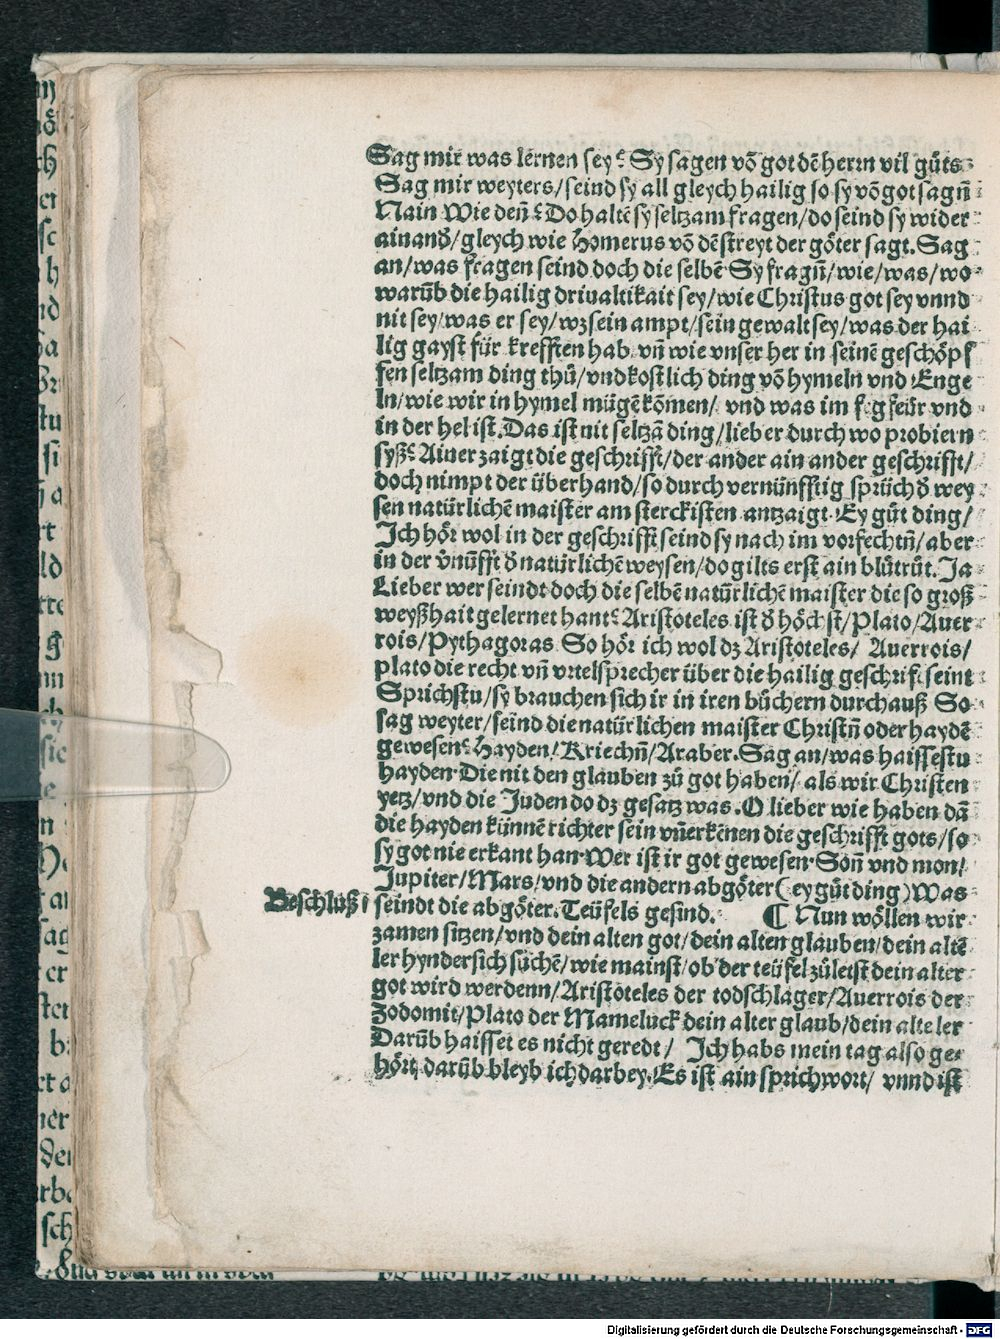 Sag mir was lernen sey? Sy sagen võ got dẽ herrn vil gůts
Sag mir weyters/seind sy all gleych hailig so sy võ got sagñ
Nain Wie deñ? Do haltẽ sy seltzam fragen/do seind sy wider
ainanð/gleych wie Homerus võ dẽ streyt der göter sagt. Sag
an/was fragen seind doch die selbẽ Sy fragñ/wie/was/wo
warũb die hailig driualtikait sey/wie Christus got sey vnnd
nit sey/was er sey/wz sein ampt/sein gewalt sey/was der hai
lig gayst für krefften hab vñ wie vnser her in seinẽ geschöpf
fen seltzam ding thů/vnd kostlich ding võ hymeln vnd Enge
ln/wie wir in hymel mügẽ kõmen/ vnd was im fegfeür vnd
in der hel ist. Das ist nit seltzã ding/lieber durch wo probiern
syß? Ainer zaigt die geschrifft/der ander ain ander geschrifft/
doch nimpt der überhand/so durch vernünfftig sprüch ð wey
sen natürlichẽ maister am sterckisten antzaigt. Ey gůt ding/
Ich hör wol in der geschrifft seind sy nach im vorfechtñ/aber
in der v̾nũfft ð natürlichẽ weysen/do gilts erst ain blůtrůt. Ja
Lieber wer seindt doch die selbẽ natürlichẽ maister die so groß
weyßhait gelernet hant? Aristoteles ist ð höchst/Plato/Auer
rois/Pythagoras So hör ich wol dz Aristoteles/ Auerrois/
plato die recht vñ vrtelsprecher über die hailig geschrift seint
Sprichstu/sy brauchen sich ir in iren bůchern durchauß So
sag weyter/seind die natürlichen maister Christñ oder haydẽ
gewesen? Hayden/Kriechñ/Araber. Sag an/was haissestu
hayden. Die nit den glauben zů got haben/ als wir Christen
yetz/vnd die Juden do dz gesatz was. O lieber wie haben dã
die hayden künnẽ richter sein vñ erkẽnen die geschrifft gots/so
sy got nie erkant han. Wer ist ir got gewesen. Soñ vnd mon/
Jupiter/Mars/vnd die andern abgöter (ey gůt ding) Was
Beschluß seindt die abgöter. Teüfels gesind. ¶ Nun wöllen wir
zamen sitzen/vnd dein alten got/dein alten glauben/dein altẽ
ler hyndersich sůchẽ/wie mainst/ob der teüfel zůletst dein alter
got wird werdenn/Aristoteles der todschlager/Auerrois der
Zodomit/Plato der Mameluck dein alter glaub/dein alte ler
Darũb haisset es nicht geredt/ Ich habs mein tag also ge
hört, darũb bleyb ich darbey. Es ist ain sprichwort/ vnnd ist
Digitalisierung gefördert durch die Deutsche Forschungsgemeinschaft - DFG